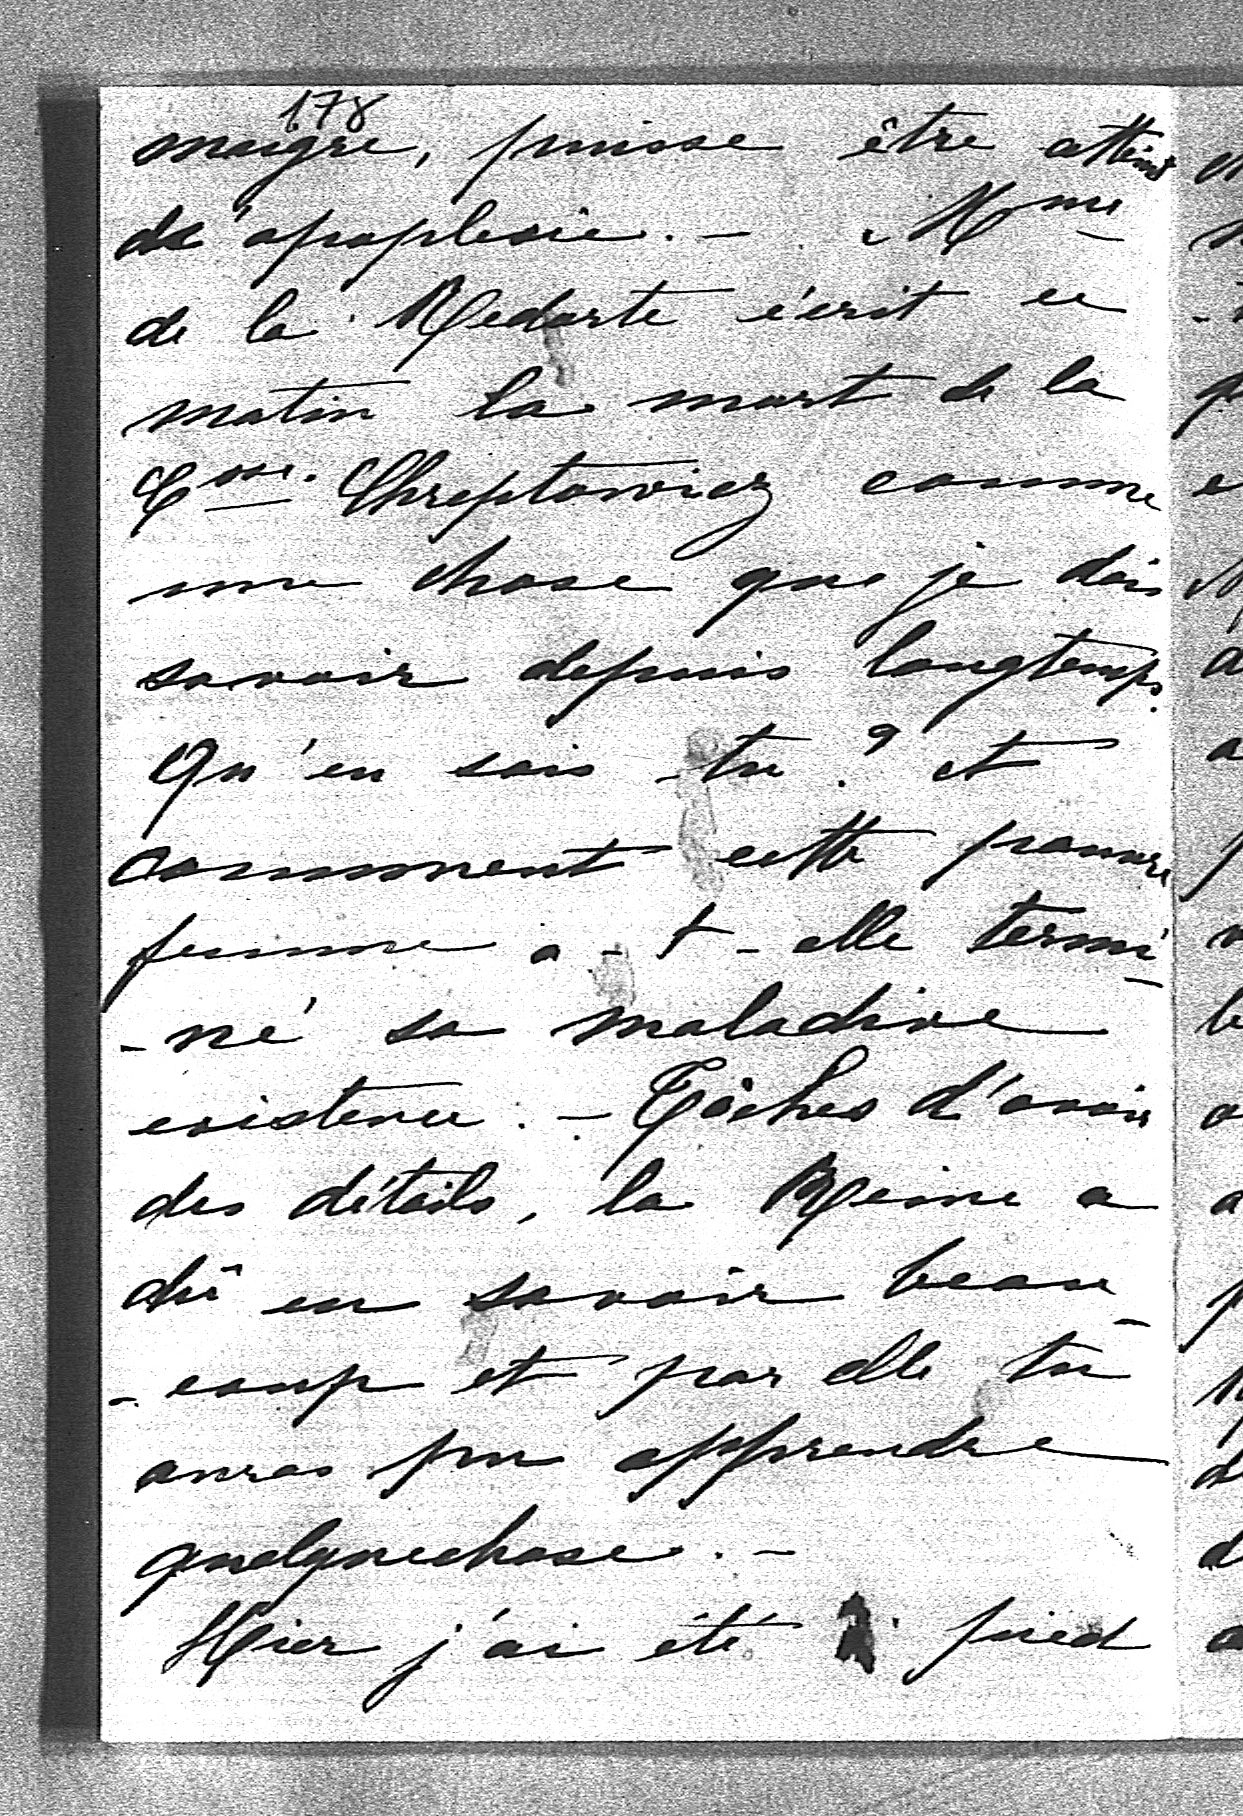 178
maigre, puisse être atteint
de l'apoplexie. - Mme
de la Redorte écrit ce
matin la mort de la
Csse. Chreptowicz comme
une chose que je dois
savoir depuis longtemps.
Qu'en sais-tu? et
comment cette pauvre
femme a-t-elle termi-
-né sa maladive
existence. - Tâches d'avoir
des détails, la Reine a
dû en savoir beau-
-coup et par elle tu
auras pu apprendre
quelquechose. -
Hier j'ai été à pied